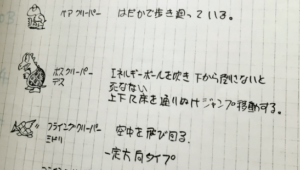 ベアクリーパー はだかで歩き廻っている。
ボスクリーパー エネルギーボールを吹き 下から倒にないと
デス 死なない
上下に床を通りぬけジャンプ移動する。
フライングクリーパー 空中を飛び回る。
ミドリ 一定方向タイプ